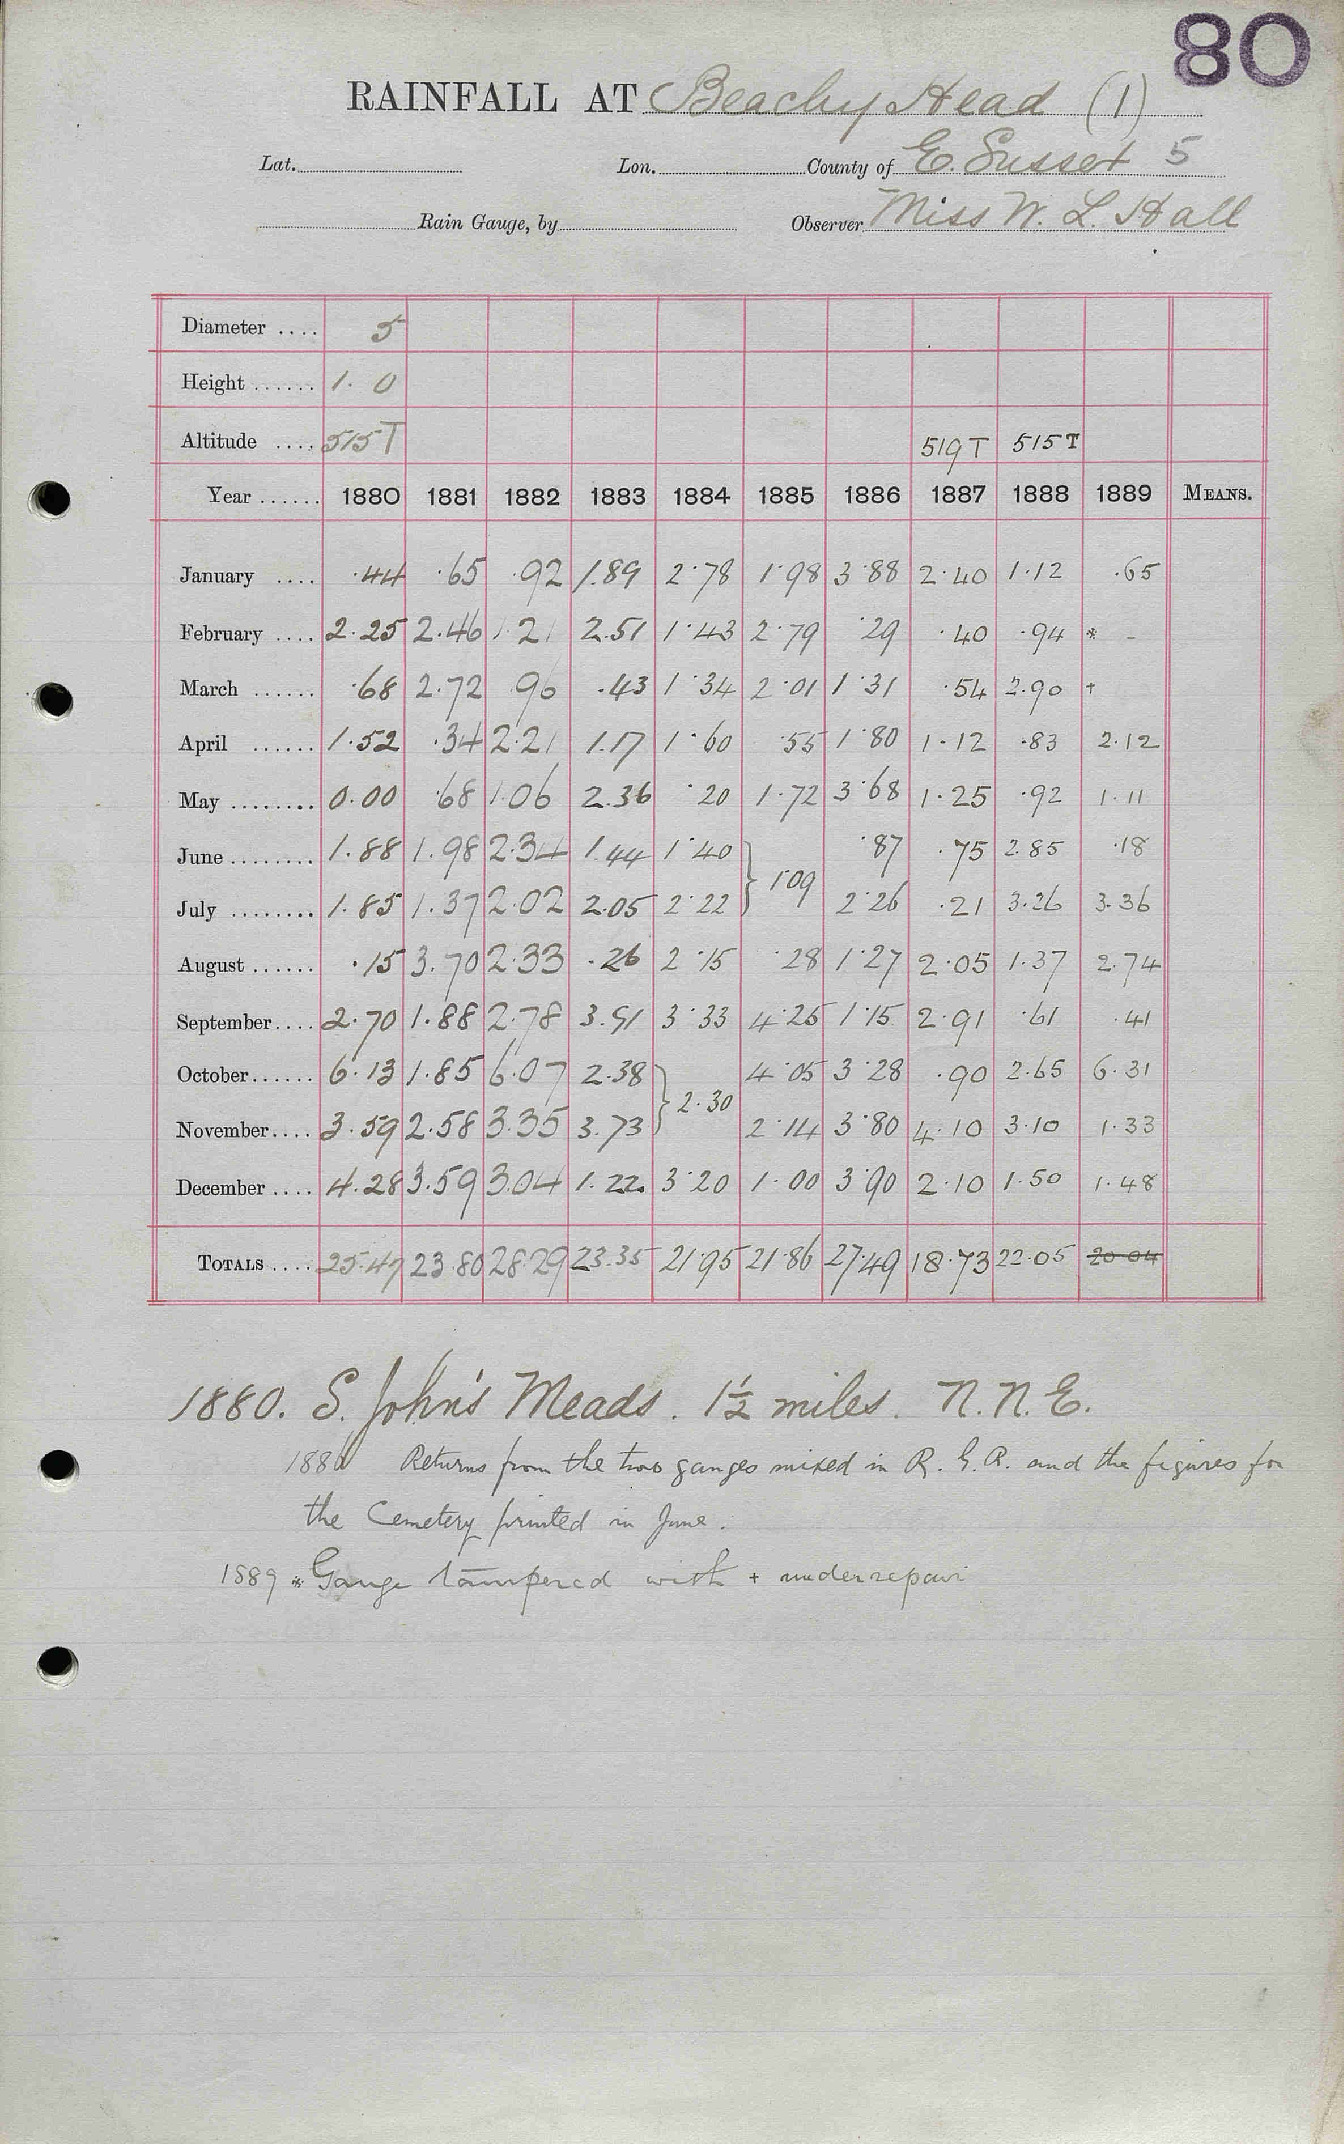 80
RAINFALL AT Beachy Head (1)
Lat. Lon. County of E. Sussex 5
Rain Gauge, by Observer Miss W. L. Hall
Diameter .... 5
Height ...... 1. 0
Altitude .... 515T 519T 515T
Year ...... 1880 1881 1882 1883 1884 1885 1886 1887 1888 1889 MEANS.
January .... ·44 ·65 ·92 1.89 2·78 1·98 3·88 2·40 1·12 ·65
February .... 2.25 2.46 1.21 2.51 1·43 2·79 ·29 ·40 ·94 * -
March ...... ·68 2.72 96 ·43 1·34 2·01 1·31 ·54 2.90 +
April ...... 1.52 ·34 2.21 1.17 1·60 ·55 1·80 1·12 ·83 2.12
May ........ 0.00 ·68 1.06 2.36 ·20 1·72 3·68 1·25 ·92 1.11
June ........ 1.88 1.98 2.34 1.44 1·40 } ·87 ·75 2.85 ·18
1·09
July ........ 1.85 1.37 2.02 2.05 2·22 2·26 ·21 3.26 3.36
August ...... ·15 3.70 2.33 ·26 2·15 ·28 1·27 2·05 1.37 2.74
September .... 2.70 1.88 2.78 3.91 3·33 4·25 1·15 2·91 ·61 ·41
October ...... 6.13 1.85 6.07 2.38 } 4·05 3·28 ·90 2.65 6.31
2·30
November .... 3.59 2.58 3.35 3.73 2·14 3·80 4·10 3.10 1.33
December .... 4.28 3.59 3.04 1.22 3·20 1·00 3·90 2·10 1.50 1.48
TOTALS .... 25.47 23.80 28.29 23.35 21·95 21·86 27·49 18·73 22·05 20 04
1880. S. John's Meads. 1½ miles. N.N.E.
Returns from the two gauges mixed in R. G. R. and the figures for
the Cemetery printed in June.
1889 * Gauge tampered with + under repair